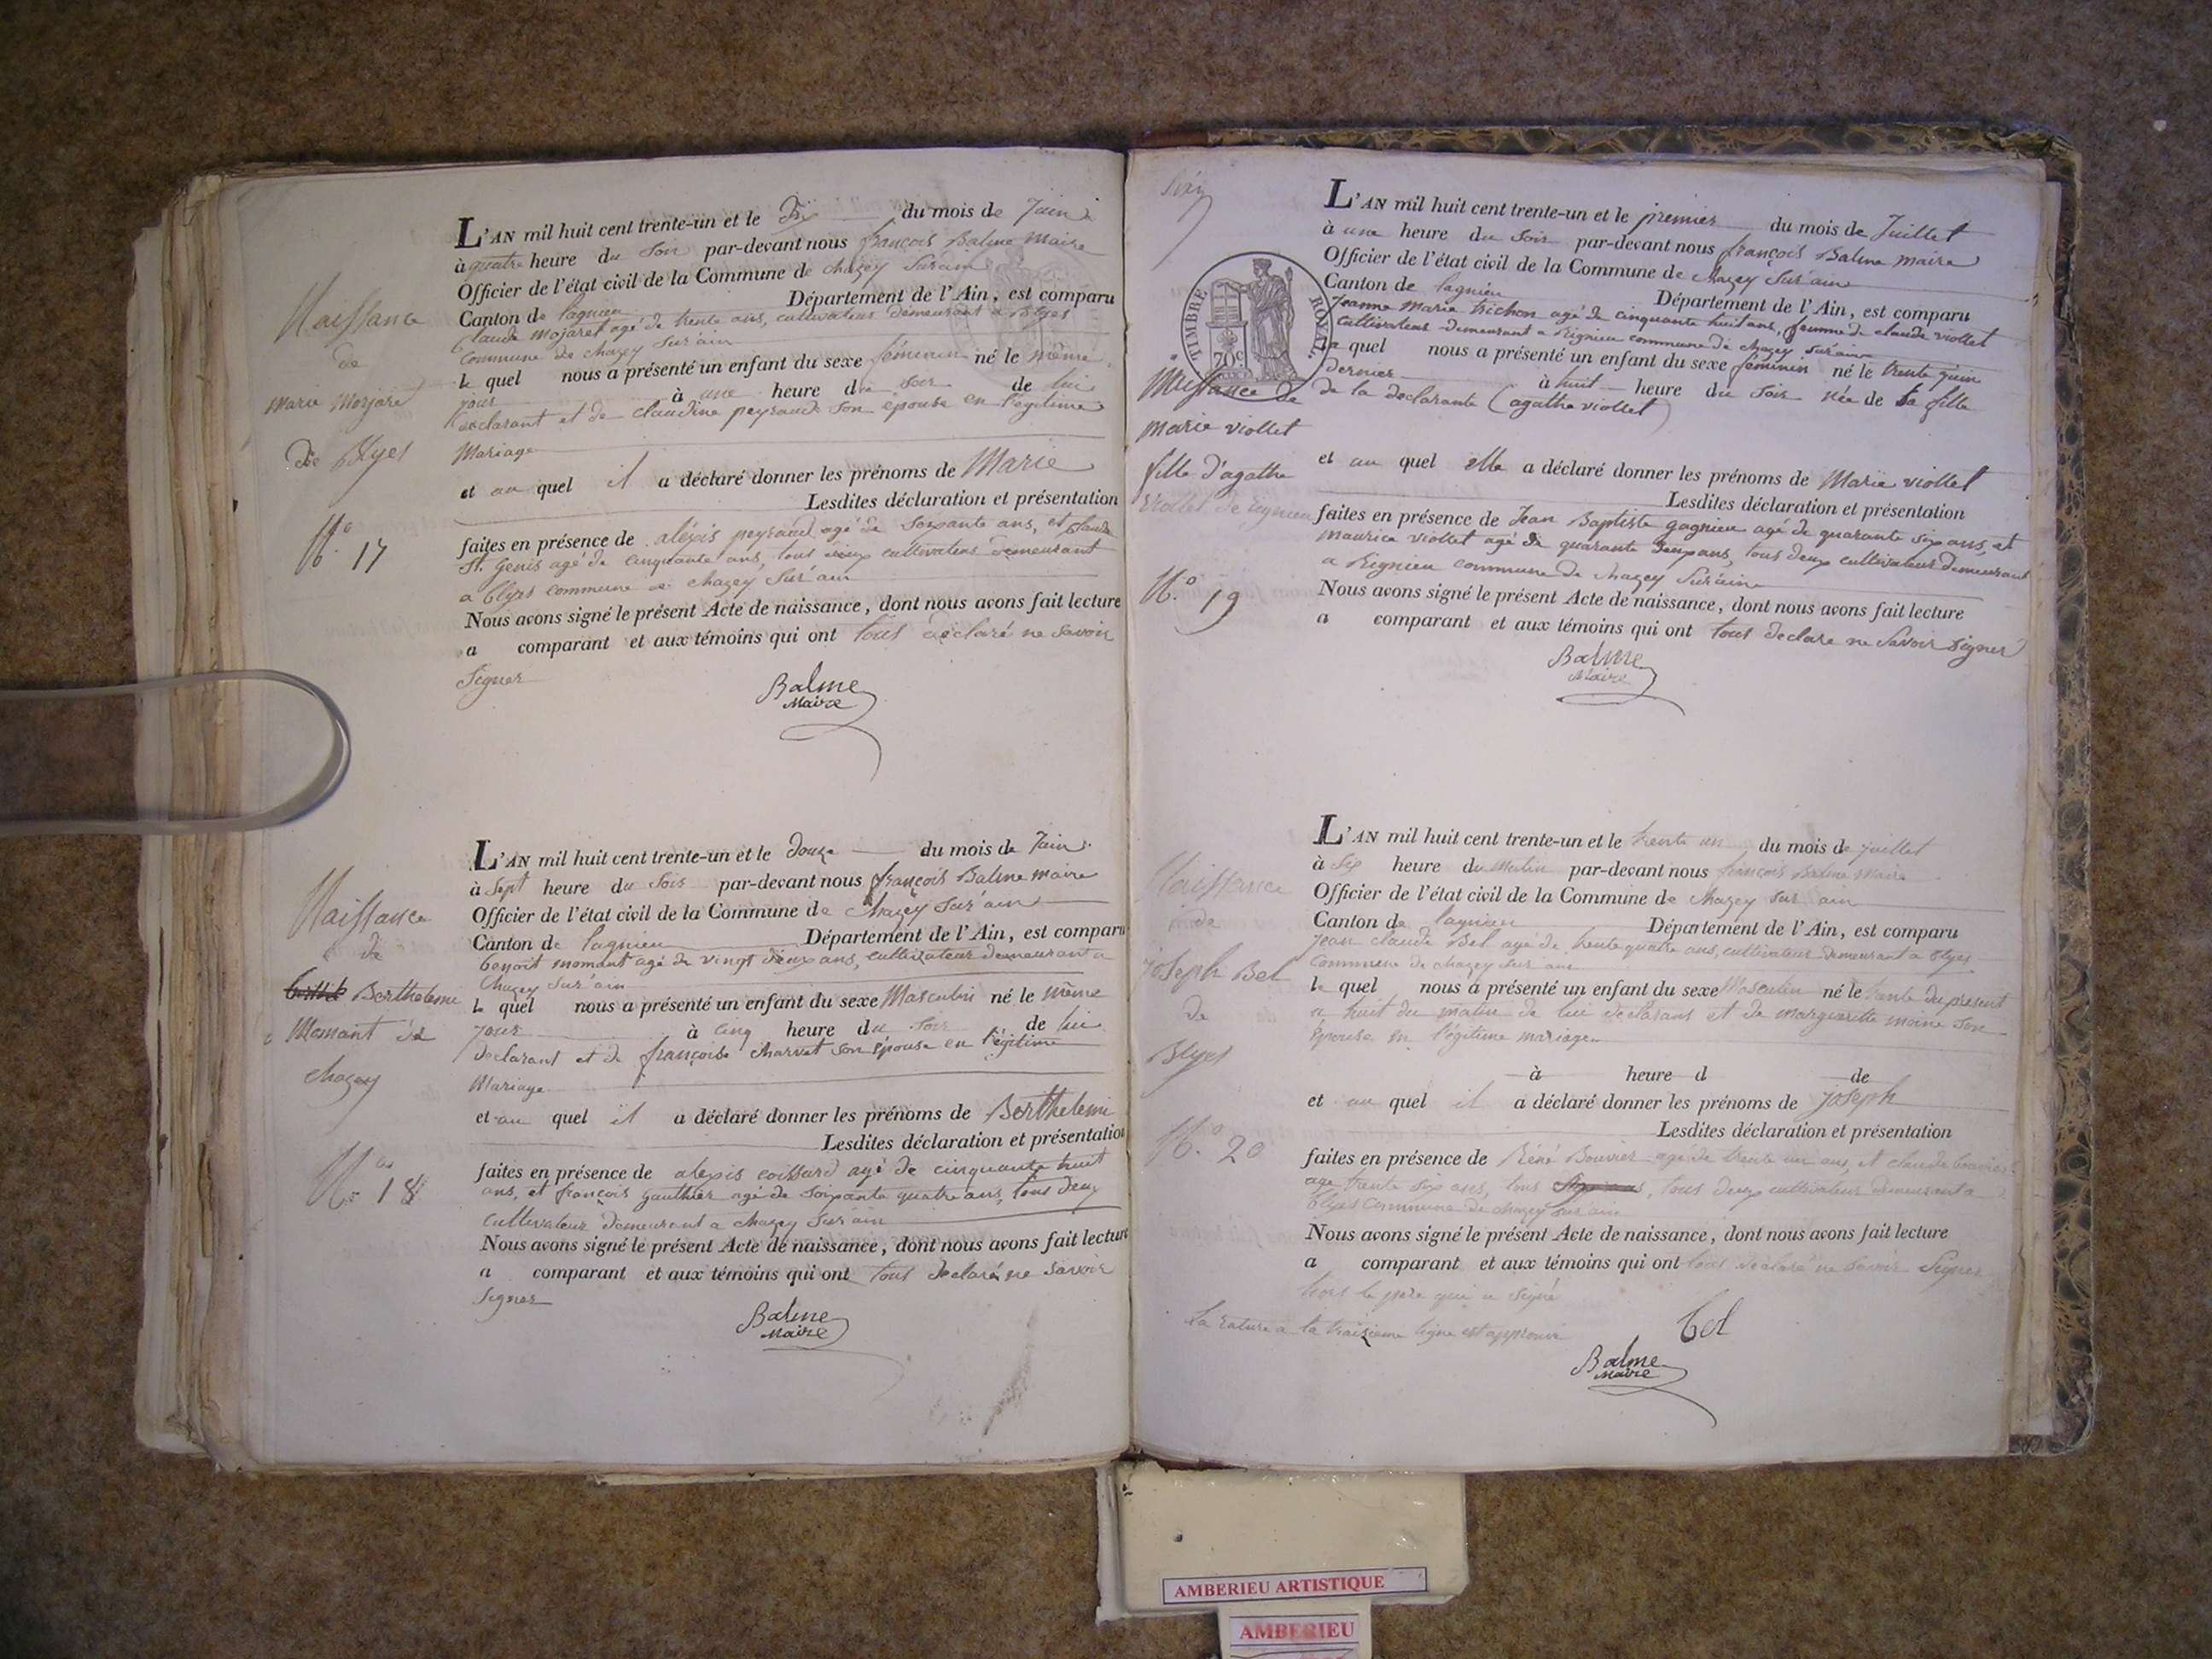 Naissance
de
Marie Morjaret
De Blyes
N.o 17
L'AN mil huit cent trente-un et le Dix du mois de Juin
à quatre heure du Soir par-devant nous françois Balme Maire
Officier de l'état civil de la Commune de chazey Sur ain
Canton de lagnieu Département de l'Ain, est comparu
Claude Mojaret agé de trente ans, cultivateur demeurant a Blyes
Commune de chazey Sur ain
le quel nous a présenté un enfant du sexe féminin né le même
jour à une heure du soir de lui
déclarant et de claudine peyraud son épouse en légitime
Mariage
et au quel il a déclaré donner les prénoms de Marie
Lesdites déclaration et présentation
faites en présence de aléxis peyraud agé de Soixante ans, et claude
St. Genis agé de Cinquante ans, tous deux cultivateur demeurant
a blyes commune de chazey Sur ain
Nous avons signé le présent Acte de naissance, dont nous avons fait lecture
a comparant et aux témoins qui ont tous déclaré ne Savoir
Signer
Balme
Maire
Naissance
de
Berthelemi
Momant de
chazey
N.o 18
L'AN mil huit cent trente-un et le douze du mois de Juin
à Sept heure du Soir par-devant nous françois Balme maire
Officier de l'état civil de la Commune de chazey Sur ain
Canton de lagnieu Département de l'Ain, est comparu
benoit momant agé de vingt deux ans, cultivateur demeurant a
Chazey Sur ain
le quel nous a présenté un enfant du sexe Masculin né le même
jour à cinq heure du Soir de lui
déclarant et de françoise charvet son épouse en légitime
Mariage
et au quel il a déclaré donner les prénoms de Berthelemi
Lesdites déclaration et présentation
faites en présence de alexis coissard agé de cinquante huit
ans, et françois gauthier agé de Soixante quatre ans, tous deux
cultivateur demeurant a chazey Sur ain
Nous avons signé le présent Acte de naissance, dont nous avons fait lecture
a comparant et aux témoins qui ont tous déclaré ne Savoir
Signer
Balme
Maire
Sixy
TIMBRE ROYAL.
70c
Naissance de
Marie viollet
fille d'agathe
viollet de rignieu
N.o 19
L'AN mil huit cent trente-un et le premier du mois de Juillet
à une heure du Soir par-devant nous françois Balme maire
Officier de l'état civil de la Commune de chazey Sur ain
Canton de lagnieu Département de l'Ain, est comparu
Jeanne Marie trichon agé de cinquante huit ans, femme de claude viollet
cultivateur demeurant a Rignieu commune de chazey sur ain
a quel nous a présenté un enfant du sexe féminin né le trente Juin
dernier à huit heure du Soir née de Sa fille
de la déclarante (agathe viollet)
et au quel elle a déclaré donner les prénoms de Marie viollet
Lesdites déclaration et présentation
faites en présence de Jean Baptiste gagnieu agé de quarante Six ans, et
Maurice viollet agé de quarante deux ans, tous deux cultivateur demeurant
a Rignieu commune de chazey Sur ain
Nous avons signé le présent Acte de naissance, dont nous avons fait lecture
a comparant et aux témoins qui ont tous declare ne Savoir Signer
Balme
Maire
Naissance
de
joseph Bel
de
Blyes
N.o 20
L'AN mil huit cent trente-un et le trente un du mois de juillet
à six heure du Matin par-devant nous françois Balme Maire
Officier de l'état civil de la Commune de chazey Sur ain
Canton de lagnieu Département de l'Ain, est comparu
jean claude Bel agé de trente quatre ans, cultivateur demeurant a blyes
Commune de chazey Sur ain
le quel nous a présenté un enfant du sexe Masculin né le trente du présent
a huit du matin de lui déclarant et de margueritte moine son
épouse en légitime mariage
à heure d de
et au quel il a déclaré donner les prénoms de joseph
Lesdites déclaration et présentation
faites en présence de Réné Bouvier agé de trente un ans, et claude bouvier
age trente six ans, tous, tous deux cultivateur demeurant a
blyes Commune de chazey sur ain
Nous avons signé le présent Acte de naissance, dont nous avons fait lecture
a comparant et aux témoins qui ont tous déclaré ne Savoir Signer
hors le père qui a signé
La rature a la traizieme ligne est approuvé
bel
Balme
Maire
AMBERIEU ARTISTIQUE
AMBERIEU